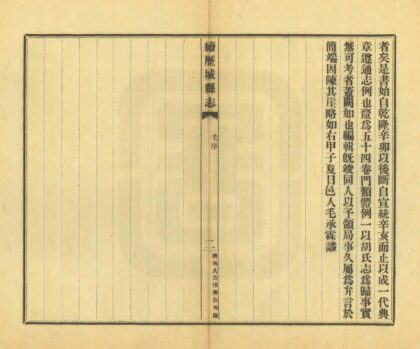 者矣是書始自乾隆辛卯以後斷自宣統辛亥而止以成一代典
章遵通志例也釐爲五十四卷門類體例一以胡氏志爲歸事實
無可考者蓋闕如也編輯旣竣同人以予領局事久屬爲弁言於
簡端因陳其崖略如右甲子夏日邑人毛承霖謹
續歷城縣志
毛序
一二
濟南大公印務公司印